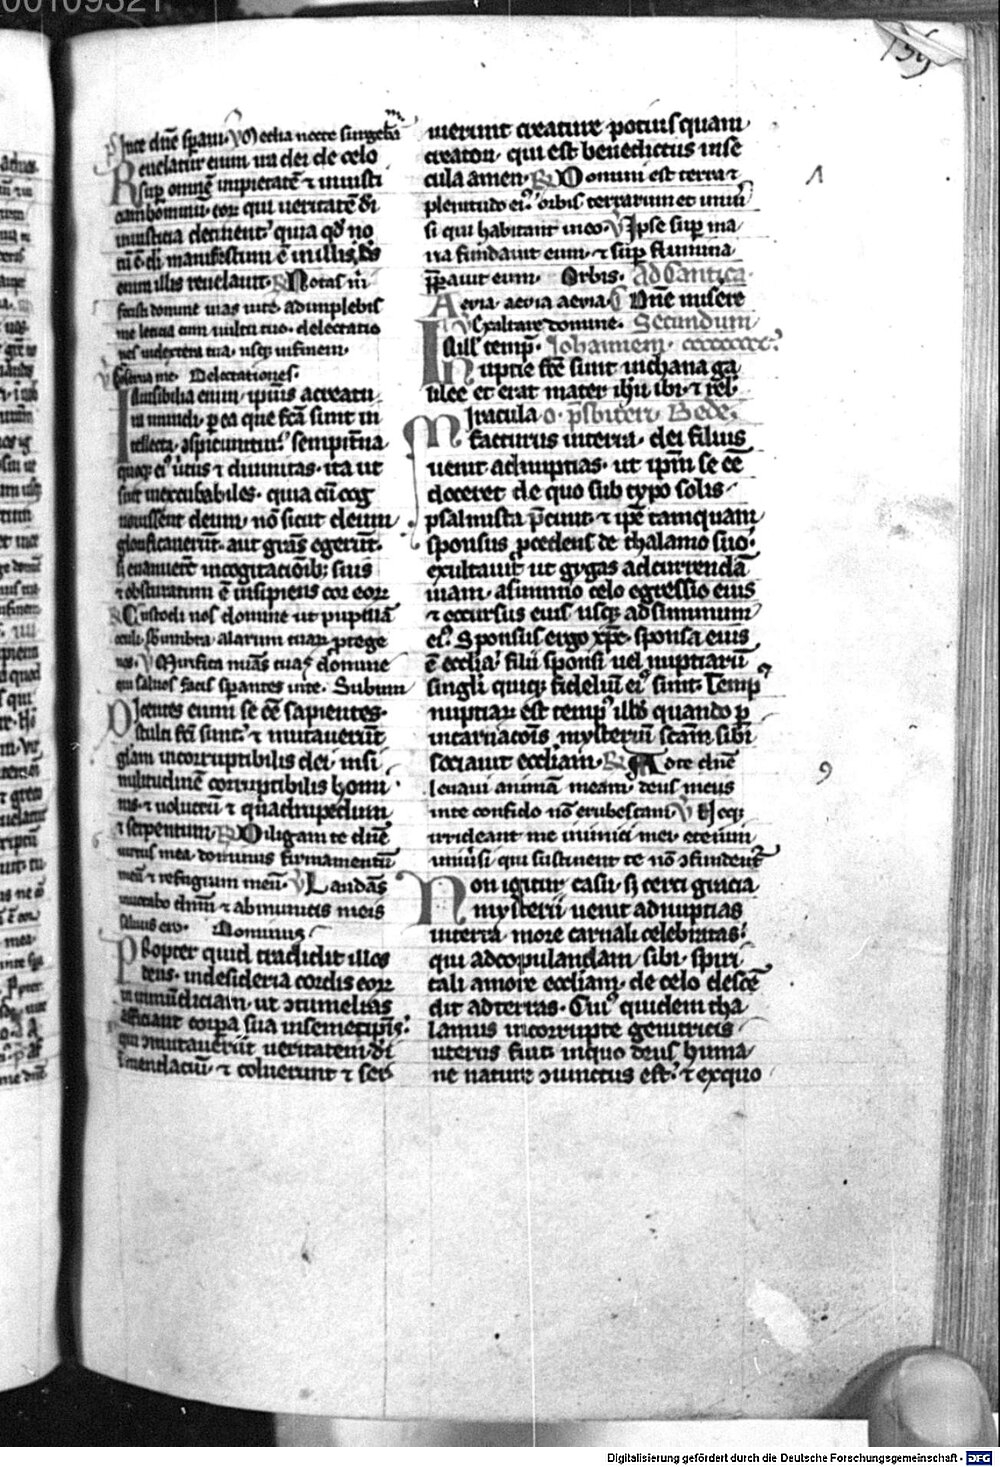 00109321
159
in te dñe speravi ℣ Media nocte surgebā
Revelatur enim ira dei de celo
sup omnē impietatē ⁊ iniusti
ciam hominū eoꝝ qui veritatē di
iniusticia detinent quia qd no
tū ē di manifestum ē in illis ds
enim illis revelavit ℟ Notas m
fecisti domine vias vite adimplebis
me leticia cum vultu tuo delectatio
nes in dextera tua usq in finem
℣ Conserva me Delectationes
Invisibilia enim ipius a creatu
ra mundi p ea que fcā sunt in
tellecta ꝯspiciuntur sempitna
quoq eiꝰ virtus ⁊ divinitas ita ut
sint inexcusabiles quia cū cog
novissent deum nō sicut deum
glorificaverūt aut gras egerūt
sed evanuerūt in cogitacioībꝫ suis
⁊ obscuratum ē insipiens cor eoꝝ
℟ Custodi nos domine ut pupillā
oculi sb umbra alarum tuaꝝ ptege
nos ℣ Mirifica mias tuas domine
qui salvos facis sperantes in te Sub um
Dicentes enim se eē sapientes
stulti fcī sunt ⁊ mutaverūt
gliam incorruptibilis dei in si
militudinē corruptibilis homi
nis ⁊ volucrū ⁊ quadrupedum
⁊ serpentum ℟ Diligam te dñe
virtus mea dominus firmamentū
meū ⁊ refugium meū ℣ Laudās
invocabo dnm ⁊ ab inimicis meis
salvus ero Dominus
Propter quid tradidit illos
deus in desideria cordis eoꝝ
in inmūdiciam ut ꝯtumeliis
afficiant corpa sua in semetipīs
qui ꝯmutaverūt veritatem di
in mendaciū ⁊ coluerunt ⁊ ser
vierunt creature potius quam
creatori qui est benedictus in se
cula amen ℟ Domini est terra ⁊
plenitudo eiꝰ orbis terrarum et univ
si qui habitant in eo ℣ Ipse sup ma
ria fundavit eum ⁊ sup flumina
ppavit eum Orbis Ad Cantica
Aevia aevia aevia Dñe misere
℣ Exaltare domine Secundum
Illo temp Iohannem
Nuptie fcē sunt in chana ga
lilee et erat mater ihu ibi ⁊ rel
Miracula o psbiteri Bede
facturus in terra dei filius
venit ad nuptias ut ipm se eē
doceret de quo sub typo solis
psalmista pcinit ⁊ ipē tamquam
sponsus pcedens de thalamo suo
exultavit ut gygas ad currendā
viam a summo celo egressio eius
⁊ occursus eius usq ad summum
eiꝰ Sponsus ergo xpc sponsa eius
ē ecclia filii sponsi vel nuptiarū
singli quiq fidelium eiꝰ sunt Tempꝰ
nuptiaꝝ est tempꝰ illud quando p
incarnacoīs mysteriū scām sibi
sociavit eccliam ℟ Ad te dñe
levavi animā meam deus meus
in te confido nō erubescam ℣ Neq
irrideant me inimici mei etenim
univsi qui sustinent te nō ꝯfundent
Non igitur casu sꝫ certi gracia
mysterii venit ad nuptias
in terra more carnali celebratas
qui ad copulandam sibi spiri
tali amore eccliam de celo descē
dit ad terras Cuiꝰ quidem tha
lamus incorrupte genitricis
uterus fuit in quo deus huma
ne nature ꝯiunctus est ⁊ ex quo
Digitalisierung gefördert durch die Deutsche Forschungsgemeinschaft - DFG